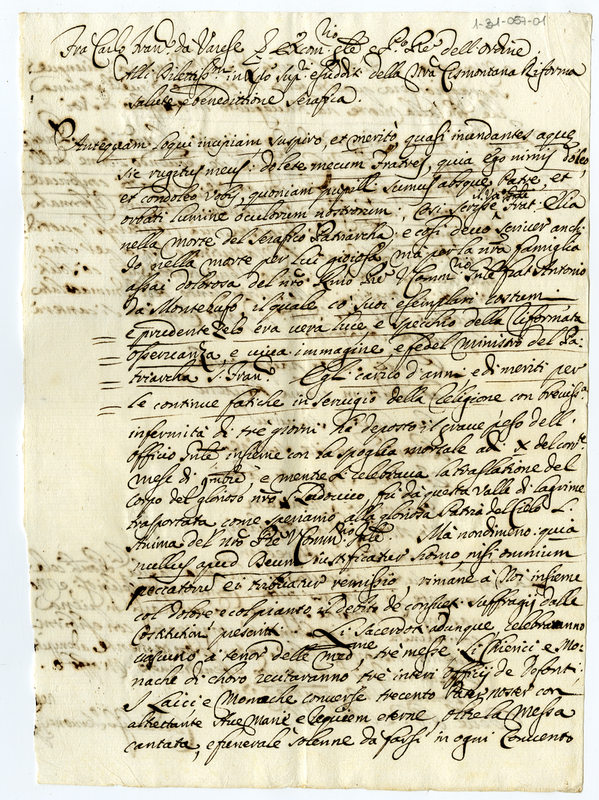 1-31-057-01
Fra Carlo Fran.º da Varese
dell'ordine.
Alli Dilettiss.mi in sup.ri e sudditi della nra Cismontana Riforma
salute e benedittione serafica.
Antequam loqui incipiam suspiro, et merito, quasi inundantes aque
sic rugitus meus: dolete mecum Fratres, quia ego nimis doleo
et condoleo vobis, quoniam pupilli sumus absque Patre, et
orbati lumine oculorum nostrorum, Così scrisse Frat. Elia
nella morte del Serafico Patriarcha, e così devo scriver anch'
Io nella morte per lui gioiosa, ma per la nra famiglia
assai dolorosa del nro Rmo Pre Frat Antonio
da il quale co' suoi esemplari costumi
e prudente zelo era vera luce e specchio della Riformata
osservanza e viva immagine e fedel ministro del Pa-
triarcha S. Fran.º Egli carico d'anni e di meriti per
le continue fatiche in servigio della Religione con breviss.a
infermità di tre giorni hà deposto il grave peso dell'
officio insieme con la spoglia mortale del cor.te
mese di e mentre si celebrava la traslatione del
corpo del glorioso nro S. Ludovico, fù da questa valle di lagrime
trasportata come speriamo alla gloriosa Patria del Cielo l'
Anima del nro Pre Ma nondimeno quia
nullus apud Deum iustificatur homo, nisi omnium
peccatorum ei tribuatur remissio, rimane à Noi insieme
col dolore e col pianto, il debito de consueti suffragij dalle
Costitutioni prescritti. Li Sacerdoti adunque celebraranno
ciascuno à tenor delle tre messe. Li Chierici e Mo-
nache di choro recitaranno tre interi officij de Defonti;
I Laici e Monache converse trecento Pater noster con
altrettante Ave Marie e Requiem eternę, oltre la Messa
cantata, e funerale solenne da farsi in ogni Convento